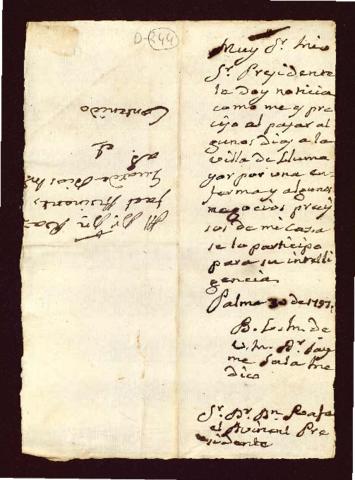 D-244
Muy Sr. mio
Sr. Presidente
le doy noticia
como me es pre
ciso al pasar al
gunos dias a la
villa de Lluma
yor por una en
ferma y algunos
negocios preci
sos de me Casa
se lo participo
para su inteli
gencia
Palma 30 de
B. L. M. de
V. M. Dr. Jay
me Sala Me
dico
Sr. Dr. Dn. Rafa
el Pre
sidente
Al Sr. Dr. Dn. Ra
fael
Gue. de Dios
Contenido